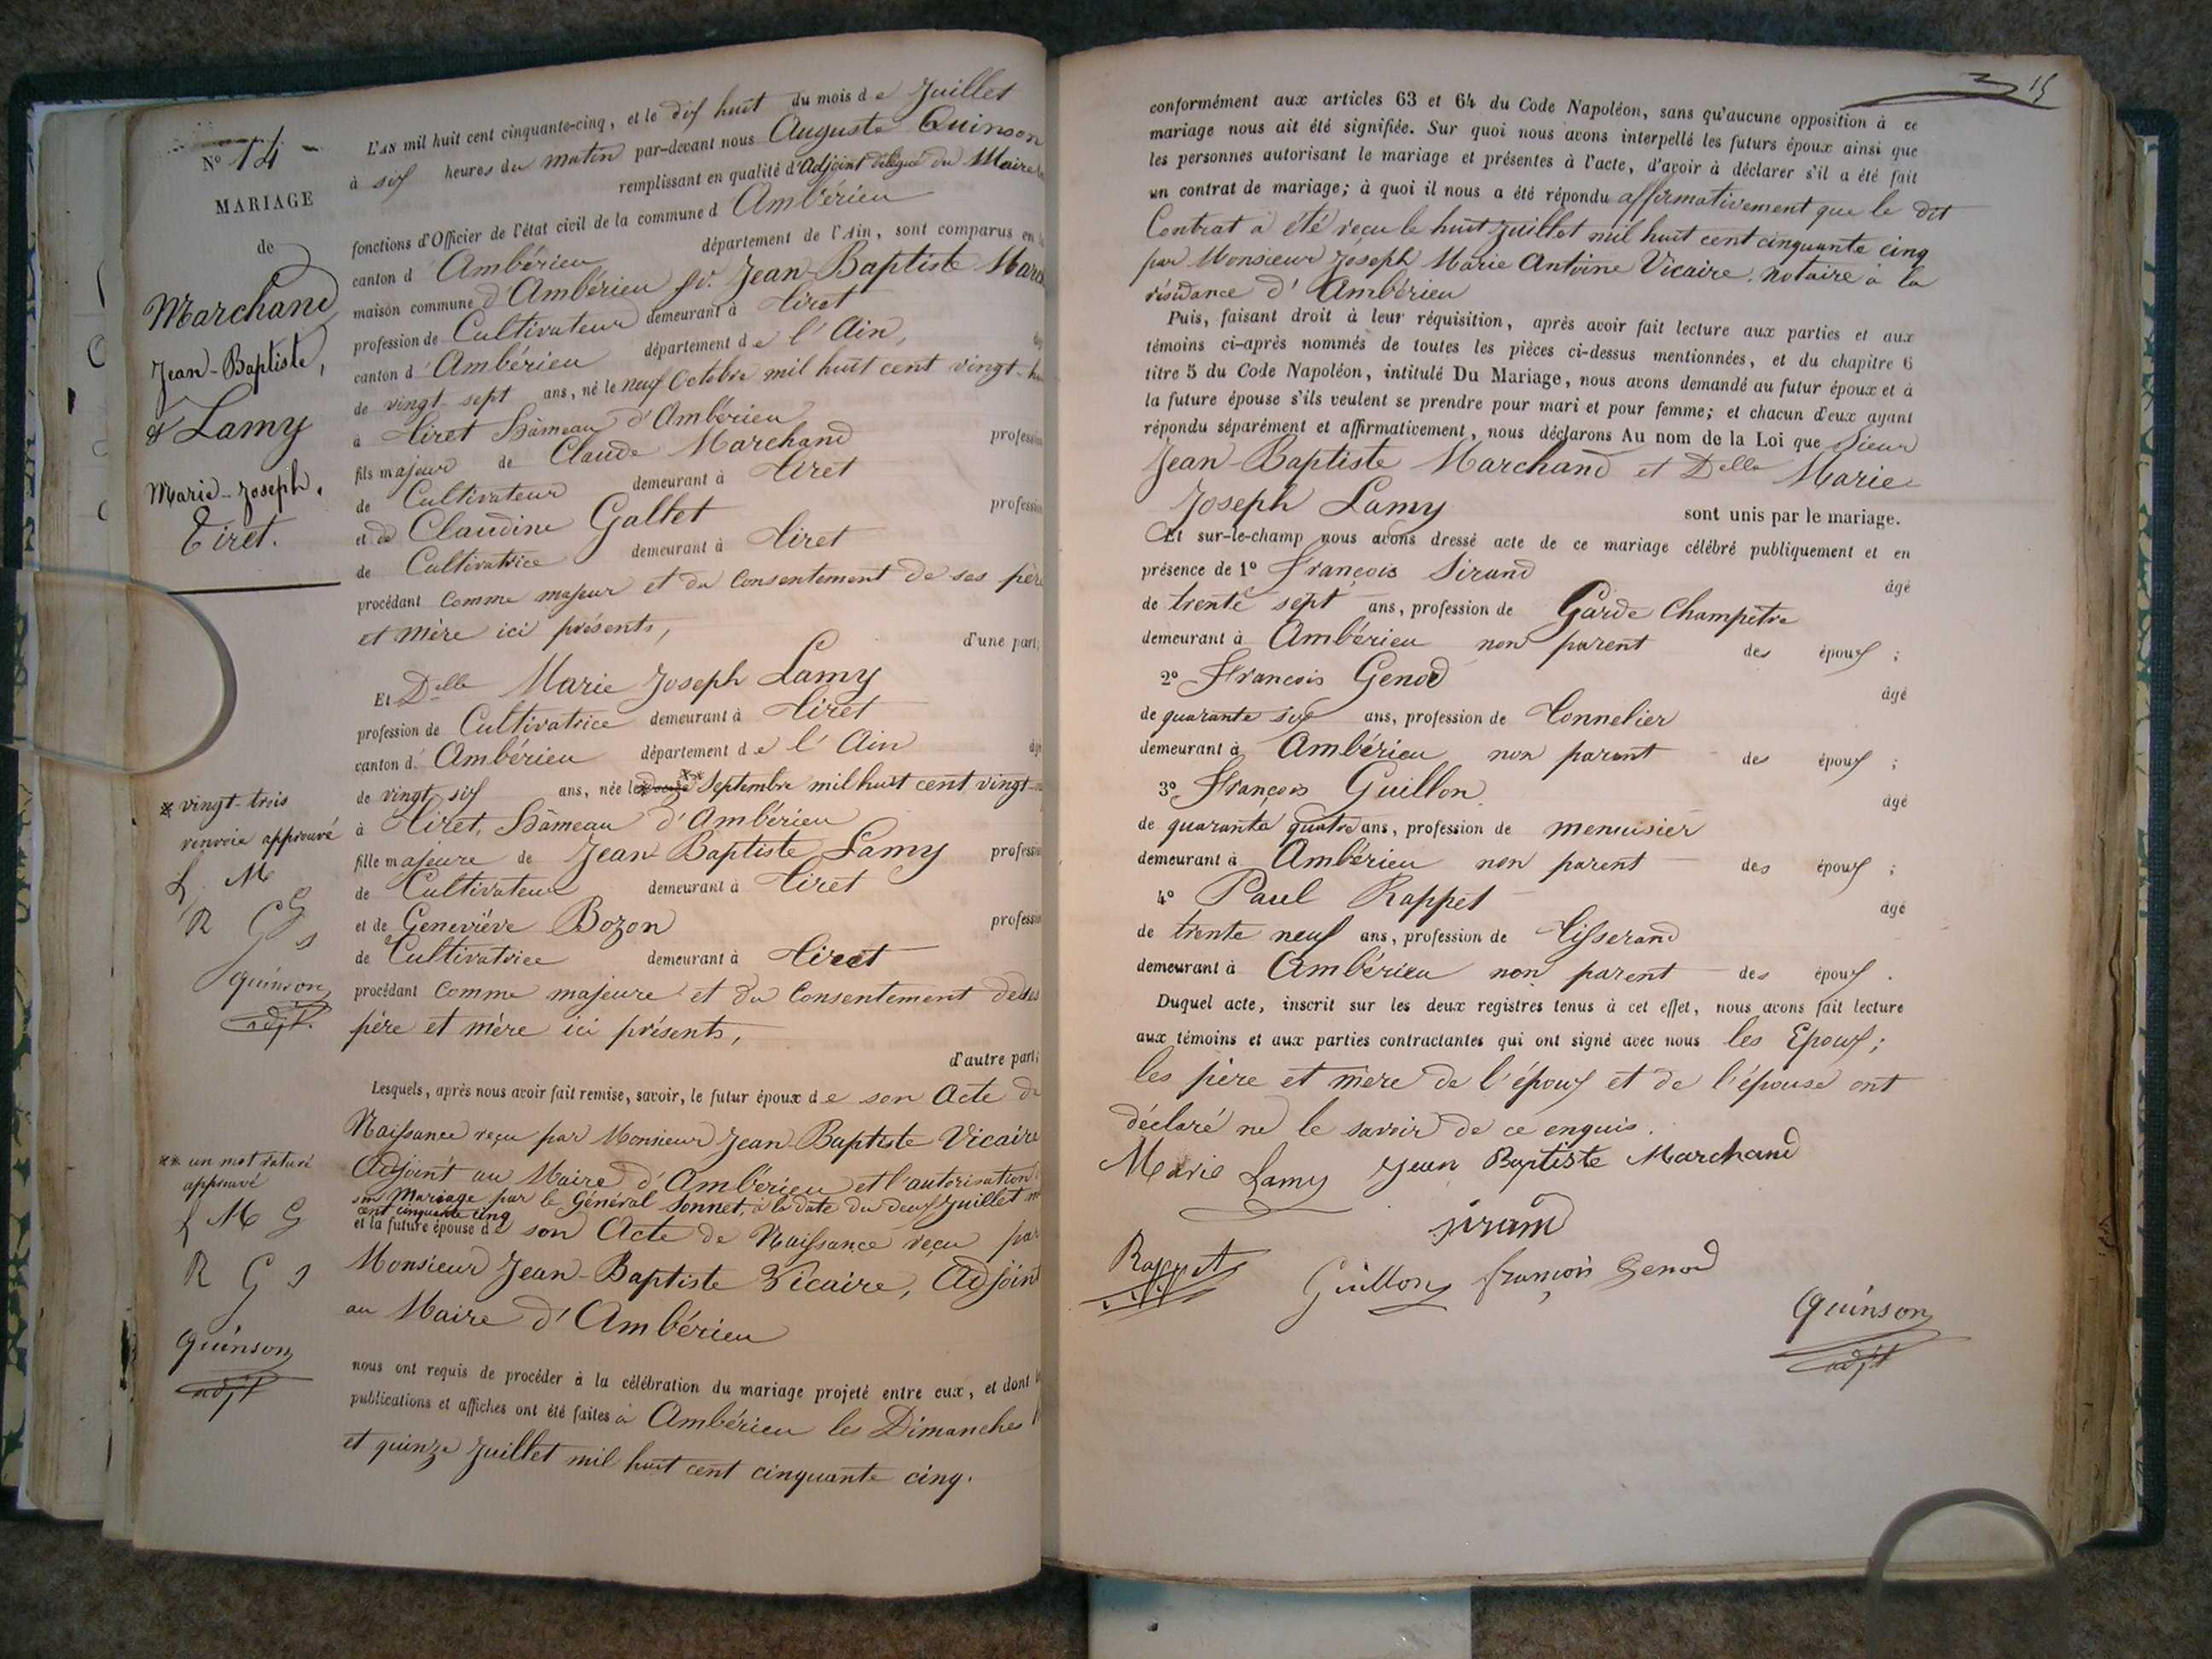 N° 14
MARIAGE
de
Marchand
Jean-Baptiste,
& Lamy
Marie-Joseph.
Tiret.
* vingt-trois
renvoie approuvé
L M
R G G S
Quinson
adjt.
** un mot raturé
approuvé
L M G
R G S
Quinson
adjt
L'AN mil huit cent cinquante-cinq, et le dix huit du mois de Juillet
à six heures du matin par-devant nous Auguste Quinson
remplissant en qualité d'Adjoint délégué du Maire
fonctions d'Officier de l'état civil de la commune d Ambérieu
canton d Ambérieu département de l'Ain, sont comparus en
maison commune d'Ambérieu Sr. Jean-Baptiste
profession de Cultivateur demeurant à Tiret
canton d'Ambérieu département de l'Ain,
de vingt-sept ans, né le neuf Octobre mil huit cent vingt-
à Tiret Hameau d'Ambérieu
fils majeur de Claude Marchand
de Cultivateur demeurant à Tiret
et de Claudine Gallet
de Cultivatrice demeurant à Tiret
procédant comme majeur et du Consentement de ses père
et mère ici présents, d'une part;
Et Delle Marie Joseph Lamy
profession de Cultivatrice demeurant à Tiret
canton d'Ambérieu département de l'Ain
de vingt six ans, née le * ** Septembre mil huit cent vingt-
à Tiret, Hameau d'Ambérieu
fille majeure de Jean-Baptiste Lamy
de Cultivateur demeurant à Tiret
et de Geneviève Bozon
de Cultivatrice demeurant à Tiret
procédant comme majeure et du Consentement de ses
père et mère ici présents,
d'autre part;
Lesquels, après nous avoir fait remise, savoir, le futur époux de son Acte de
Naissance reçu par Monsieur Jean-Baptiste Vicaire
Adjoint au Maire d'Ambérieu et l'autorisation
son Mariage par le Général Sonnet, à la date du deux Juillet
cent cinquante cinq
et la future épouse de son Acte de Naissance reçu par
Monsieur Jean-Baptiste Vicaire, Adjoint
au Maire d'Ambérieu
nous ont requis de procéder à la célébration du mariage projeté entre eux, et dont
publications et affiches ont été faites à Ambérieu les Dimanches
et quinze Juillet mil huit cent cinquante cinq.
15
conformément aux articles 63 et 64 du Code Napoléon, sans qu'aucune opposition à ce
mariage nous ait été signifiée. Sur quoi nous avons interpellé les futurs époux ainsi que
les personnes autorisant le mariage et présentes à l'acte, d'avoir à déclarer s'il a été fait
un contrat de mariage; à quoi il nous a été répondu affirmativement que le dit
Contrat a été reçu le huit Juillet mil huit cent cinquante cinq
par Monsieur Joseph Marie Antoine Vicaire, notaire à la
résidance d'Ambérieu
Puis, faisant droit à leur réquisition, après avoir fait lecture aux parties et aux
témoins ci-après nommés de toutes les pièces ci-dessus mentionnées, et du chapitre 6
titre 5 du Code Napoléon, intitulé Du Mariage, nous avons demandé au futur époux et à
la future épouse s'ils veulent se prendre pour mari et pour femme; et chacun d'eux ayant
répondu séparément et affirmativement, nous déclarons Au nom de la Loi que Sieur
Jean-Baptiste Marchand et Delle Marie
Joseph Lamy sont unis par le mariage.
Et sur-le-champ nous avons dressé acte de ce mariage célébré publiquement et en
présence de 1° François Sirand âgé
de trente sept ans, profession de Garde Champêtre
demeurant à Ambérieu non parent des époux ;
2° François Genod âgé
de quarante six ans, profession de Tonnelier
demeurant à Ambérieu non parent des époux ;
3° François Guillon âgé
de quarante quatre ans, profession de menuisier
demeurant à Ambérieu non parent des époux ;
4° Paul Rappet âgé
de trente neuf ans, profession de Tisserand
demeurant à Ambérieu non parent des époux .
Duquel acte, inscrit sur les deux registres tenus à cet effet, nous avons fait lecture
aux témoins et aux parties contractantes qui ont signé avec nous les Epoux;
les père et mère de l'époux et de l'épouse ont
déclaré ne le savoir de ce enquis.
Marie Lamy Jean Baptiste Marchand
Sirand
Rappet Guillon françois Genod
Quinson
adjt